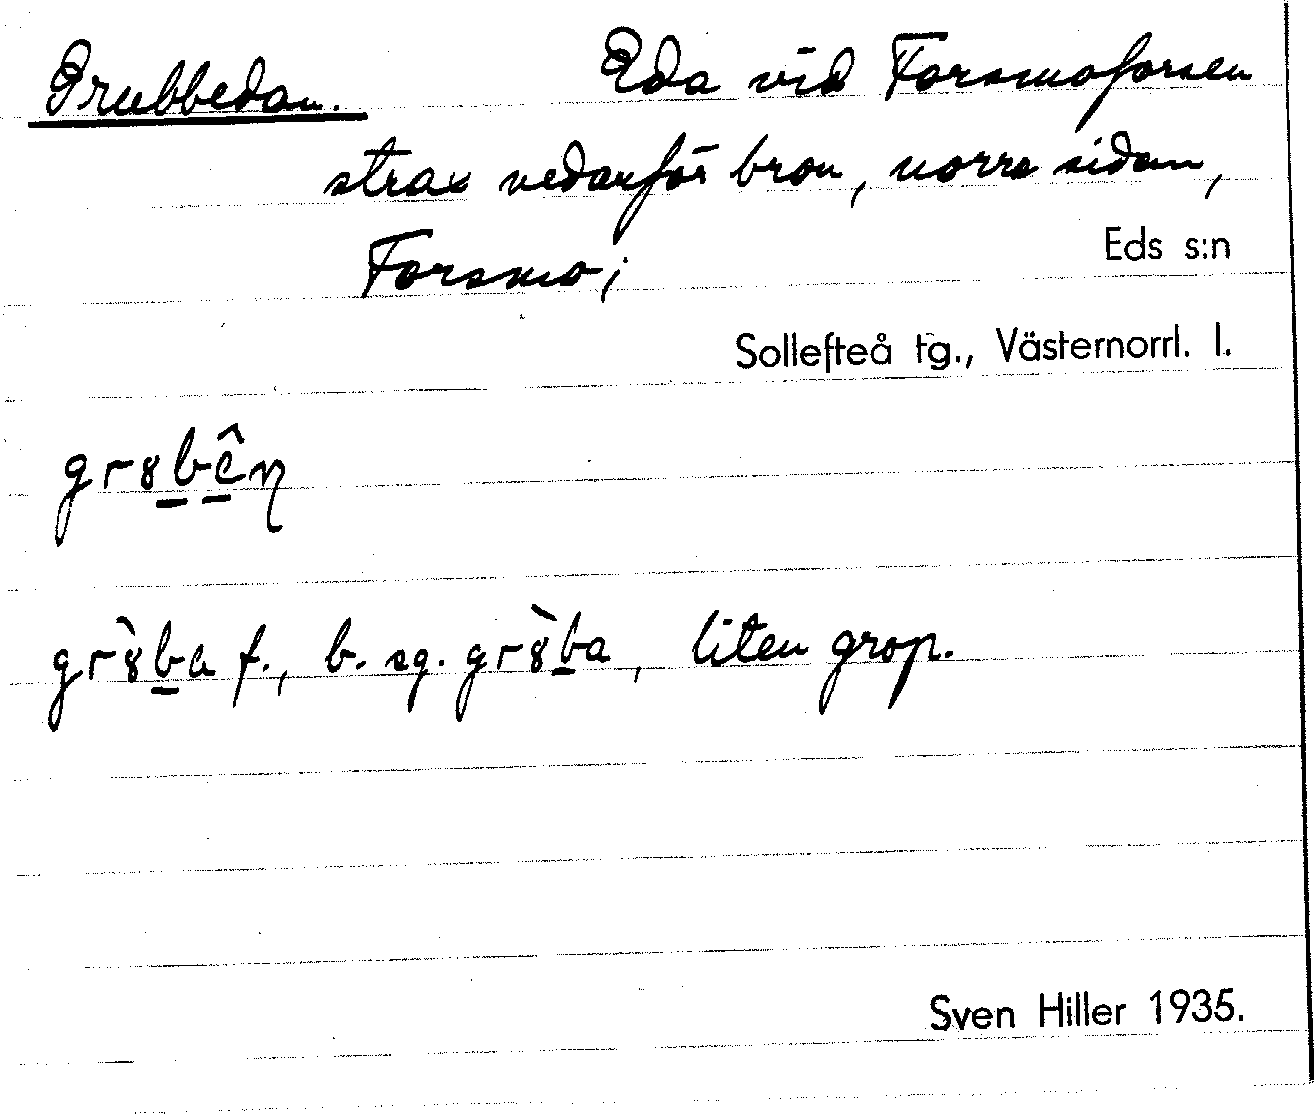 Grubbedan. Eda vid Forsmoforsen
strax nedanför bron, norra sidan,
Forsmo; Eds s:n
Sollefteå tg., Västernorrl. l.
gr8b̲ê̲n̩
gr8̀b̲a f., b. sg. gr8̀b̲a, liten grop.
Sven Hiller 1935.